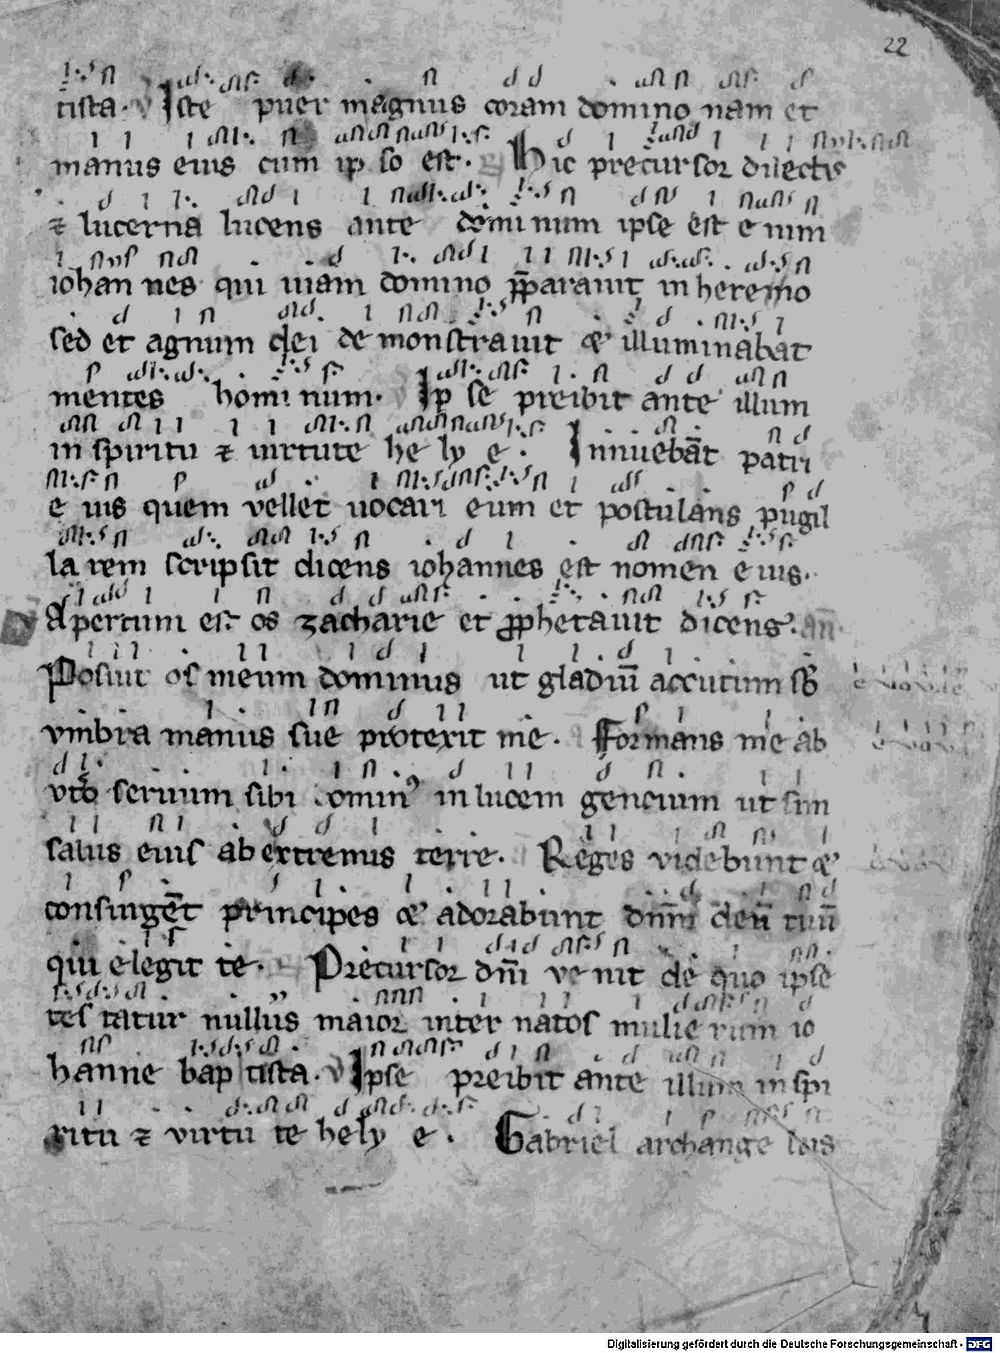 22
tista. V Iste puer magnus coram domino nam et
manus eius cum ip so est. Hic precursor dilectus
⁊ lucerna lucens ante dominum ipse est e nim
iohan nes qui uiam domino p̄parauit in heremo
sed et agnum dei de monstrauit & illuminabat
mentes homi num. V Ip se preibit ante illum
in spiritu ⁊ uirtute he ly e. Innuebāt patri
e ius quem vellet uocari eum et postulans pugil
la rem scripsit dicens iohannes est nomen eius.
Apertum est os zacharie et p̄phetauit dicens. an
Posuit os meum dominus ut gladiū accutum sb̄
vmbra manus sue protexit me. Formans me ab
vt̄o seruum sibi domin⁹ in lucem gencium ut sim
salus eius ab extremis terre. Reges videbunt &
consurgēt principes & adorabunt dn̄m deū tuū
qui elegit te. Precursor dn̄i ve nit de quo ipse
tes tatur nullus maior inter natos mulie rum io
hanne bap tista. V Ipse preibit ante illum in spi
ritu ⁊ virtu te he ly e. Gabriel archange lus
Digitalisierung gefördert durch die Deutsche Forschungsgemeinschaft - DFG